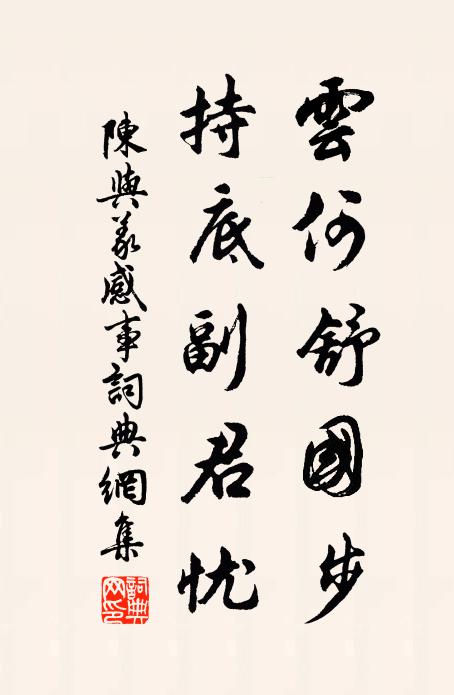 雲何舒國步
持底副君忧
陳與義感事詞典網集
詞典网印